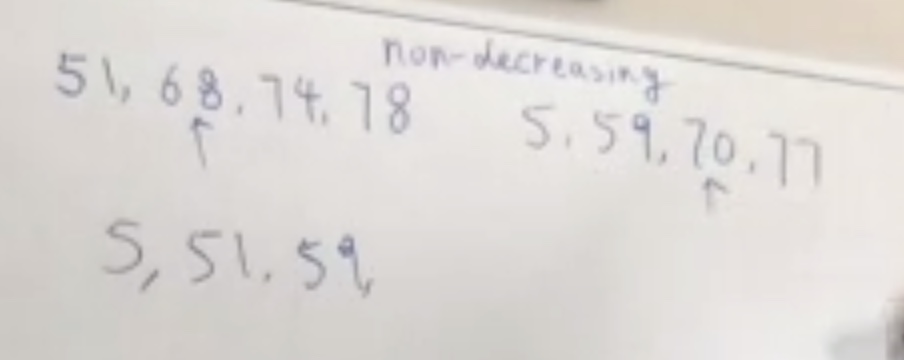 non-decreasing
51, 68, 74, 78
5, 59, 70, 77
↑ ↑
5, 51, 59,